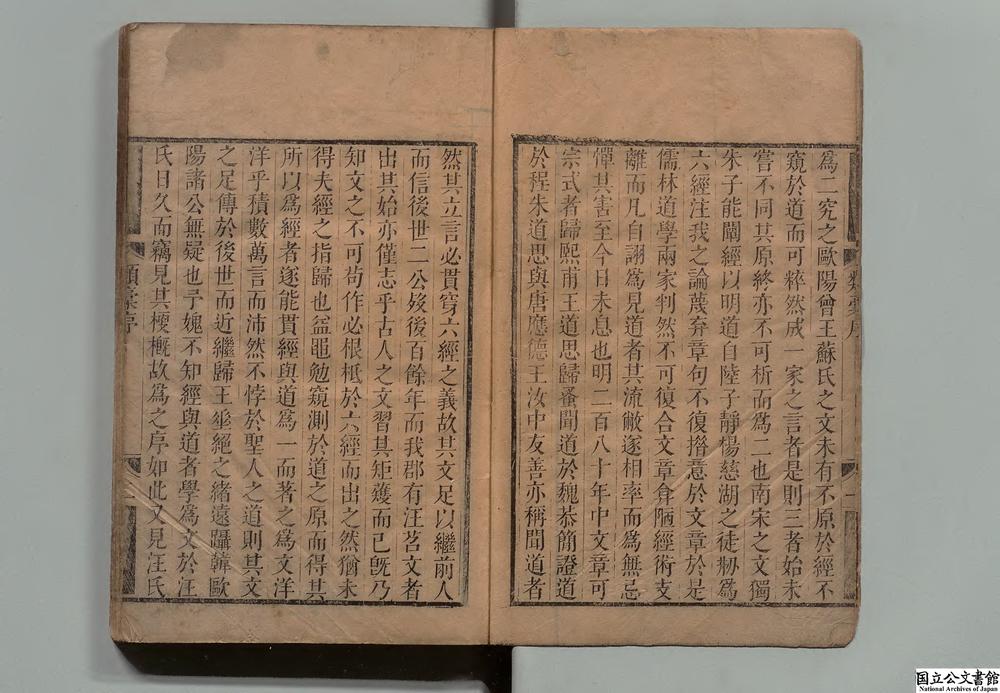 爲二究之歐陽曾王蘇氏之文未有不原於經不
窺於道而可粹然成一家之言者是則三者始未
嘗不同其原終亦不可析而爲二也南宋之文獨
朱子能闡經以明道自陸子靜楊慈湖之徒剏爲
六經注我之論蔑弃章句不復措意於文章於是
儒林道學兩家判然不可復合文章弇陋經術支
離而凡自詡爲見道者其流敝遂相率而爲無忌
憚其害至今日未息也明二百八十年中文章可
宗式者歸熙甫王道思歸蚤聞道於魏恭簡證道
於程朱道思與唐應德王汝中友善亦稱聞道者
然其立言必貫穿六經之義故其文足以繼前人
而信後世二公歿後百餘年而我郡有汪苕文者
出其始亦僅志乎古人之文習其矩矱而已旣乃
知文之不可苟作必根柢於六經而出之然猶未
得夫經之指歸也益黽勉窺測於道之原而得其
所以爲經者遂能貫經與道爲一而著之爲文洋
洋乎積數萬言而沛然不悖於聖人之道則其文
之足傳於後世而近繼歸王垂絕之緒遠躡韓歐
陽諸公無疑也予媿不知經與道者學爲文於汪
氏日久而竊見其梗槪故爲之序如此又見汪氏
類稾序
二
国立公文書館
National Archives of Japan